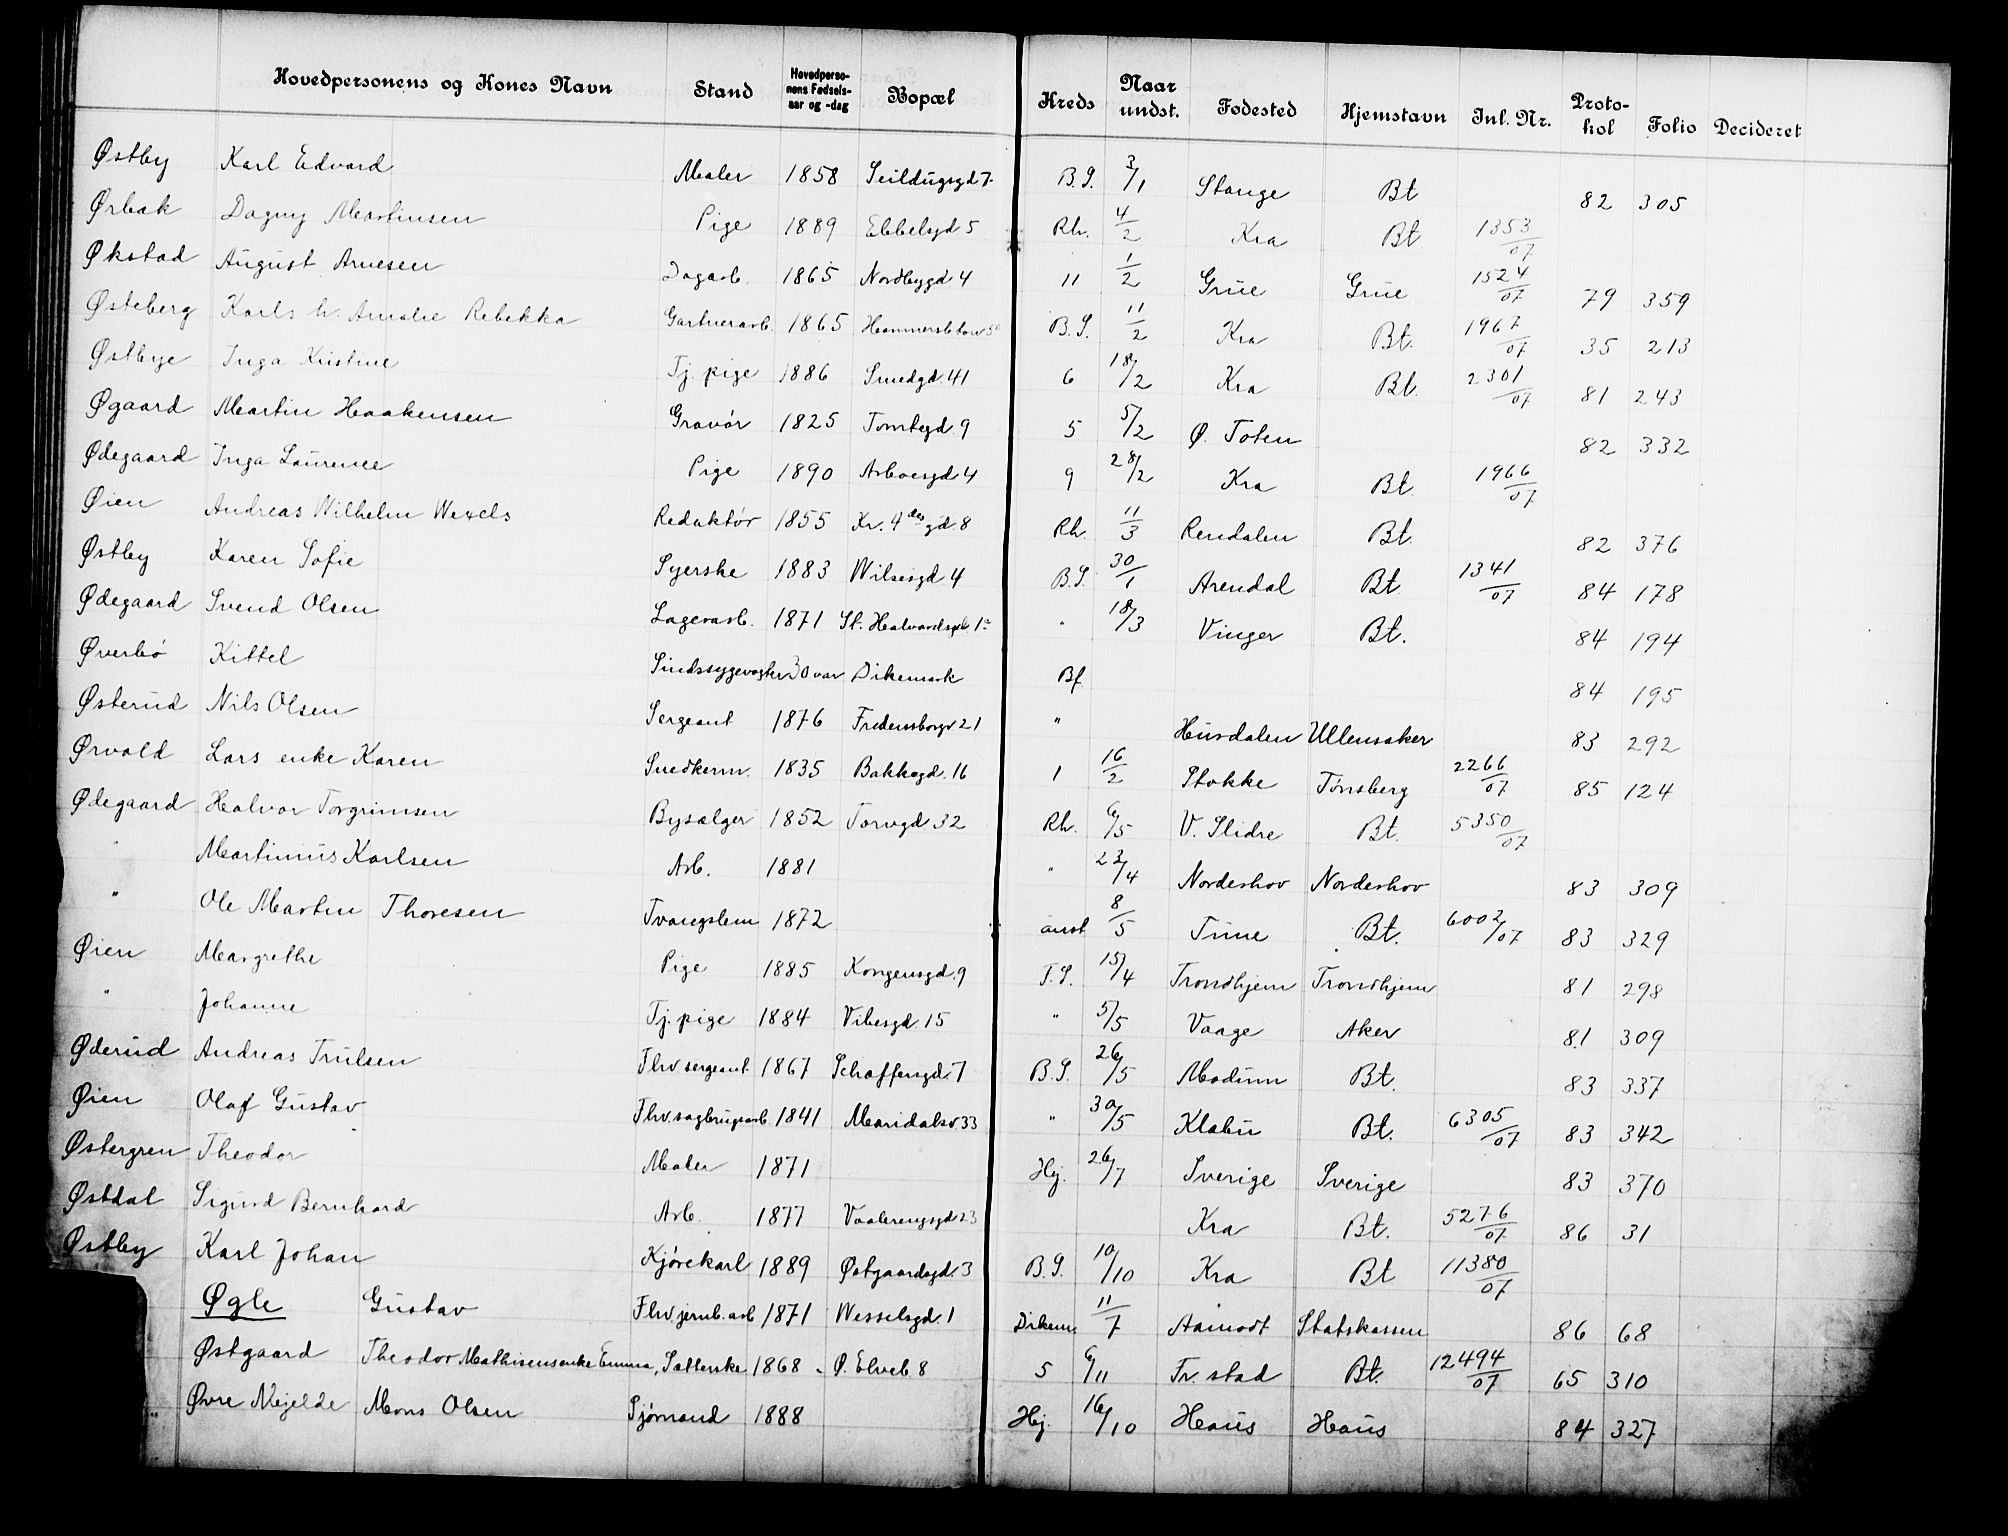 Hovedpersonens og Kones Navn Stand Hovedpersonens Fødselsaar og -dag Bopæl Kreds Naar undst. Fødested Hjemstavn Inl. Nr. Protokol Folio Decideret
Østby Karl Edvard Maler 1858 Seildugsgd 7. B.S. 3/1 Stange Bt 82 305
Ørbak Dagny Martinsen Pige 1889 Ebbelsgd 5 Rh. 4/2 Kra Bt 1353/07
Økstad August Arnesen Dagarb. 1865 Nordbygd 4 11 1/2 Grue Grue 1524/07 79 359
Østeberg Karls h. Amalie Rebekka Gartnerarb. 1865 B.S. 11/2 Kra Bt. 1967/07 35 213
Østbye Inga Kristine Tj. pige 1886 Smedgd. 41 6 18/2 Kra Bt. 2301/07 81 243
Øgaard Martin Haakensen Gravør 1825 Tomtegd. 9 5 5/2 Ø. Toten 82 332
Ødegaard Inga Laurence Pige 1890 Arboesgd 4 9 28/2 Kra Bt. 1966/07
Øien Andreas Wilhelm Wexels Redaktør 1855 Kr. 4des gd. 8 Rh. 11/3 Rendalen Bt. 82 376
Østby Karen Sofie Syerske 1883 Wilsesgd. 4 B.S. 30/1 Arendal Bt. 1341/07 84 178
Ødegaard Svend Olsen Lagerarb. 1871 St. Halvardspl. 1 " 18/3 Vinger Bt. 84 194
Øverbø Kittel Sindssygevogter 30 aar Dikemark Bf. 84 195
Østerud Nils Olsen Sergeant 1876 Fredensborgv 21 " Hurdalen Ullensaker 83 292
Ørvald Lars enke Karen Snedkerm. 1835 Bakkegd. 16 1 16/2 Stokke Tønsberg 2266/07 85 124
Ødegaard Halvor Torgrimsen Bysælger 1852 Torvgd 32 Rh. 6/5 V. Slidre Bt. 5350/07
" Martinius Karlsen Arb. 1881 " 23/4 Norderhov Norderhov 83 309
" Ole Martin Thoresen Tvangslem 1872 anst 8/5 Time Bt. 6002/07 83 329
Øien Margrethe Pige 1885 Kongensgd. 9 T.S. 15/4 Trondhjem Trondhjem 81 298
" Johanne Tj. pige 1884 Vibesgd. 15 " 5/5 Vaage Aker 81 309
Øderud Andreas Trulsen Fhv. sergeant 1867 Schaffersgd. 7 B.S. 26/5 Modum Bt. 83 337
Øien Olaf Gustav Fhv. sagbrugsarb. 1841 Maridalsv. 33 " 30/5 Klæbu Bt. 6305/07 83 342
Østergren Theodor Maler 1871 Hj. 26/7 Sverige Sverige 83 370
Østdal Sigurd Bernhard Arb. 1877 Vaalerengsgd 23 Kra Bt. 5276/07 86 31
Østby Karl Johan Kjørekarl 1889 Østgaardsgd. 3 B.S. 10/10 Kra Bt 11380/07
Øgle Gustav Fhv. jernb. arb 1871 Wesselsgd. 1 Dikem. 11/7 Aamodt Statskassen 86 68
Østgaard Theodor Mathisens enke Emma, 1868 Ø. Elveb 8 5 6/11 Fr. stad Bt. 12494/07 65 310
Øvre Mjelde Mons Olsen Sjømand 1888 Hj. 16/10 Haus Haus 84 327